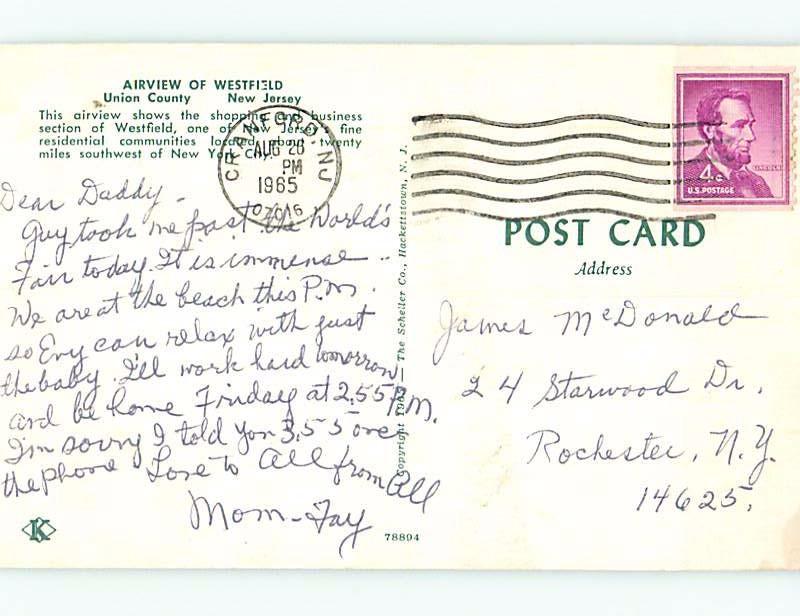 AIRVIEW OF WESTFIELD
Union County New Jersey
This airview shows the shopping and business
section of Westfield, one of New Jersey fine
residential communities located about twenty
miles southwest of New York City.
CRANFORD, NJ
AUG 26
PM
1965
07016
LINCOLN
4¢
U.S. POSTAGE
Dear Daddy -
Guy took me past the World's
Fair today. It is immense --
We are at the beach this P.m.
so Evy can relax with just
the baby. I'll work hard tomorrow
and be home Friday at 2,55 P.M.
I'm sorry I told you 3,55 over
the phone Love to All from All
Mom - Fay
K
78894
Copyright The Scheller Co., Hackettstown, N. J.
POST CARD
Address
James McDonald
24 Starwood Dr.
Rochester, N.Y.
14625.